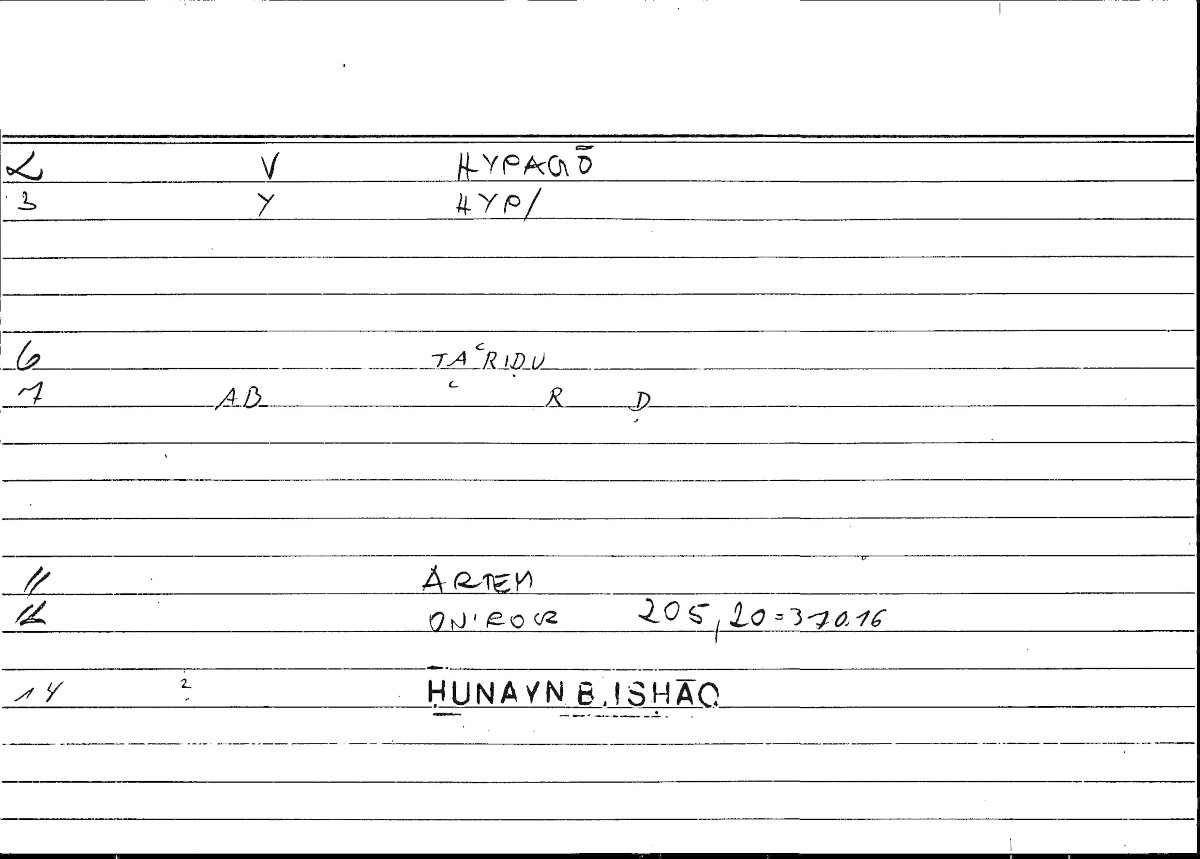 2 V HYPAGŌ
3 Y HYP/
6 TAʿRIḌU
7 AB ʿ R Ḍ
11 ARTEM
12 ONIROCR 205,20=370.16
14 2 ḤUNAYN B. ISḤĀQ